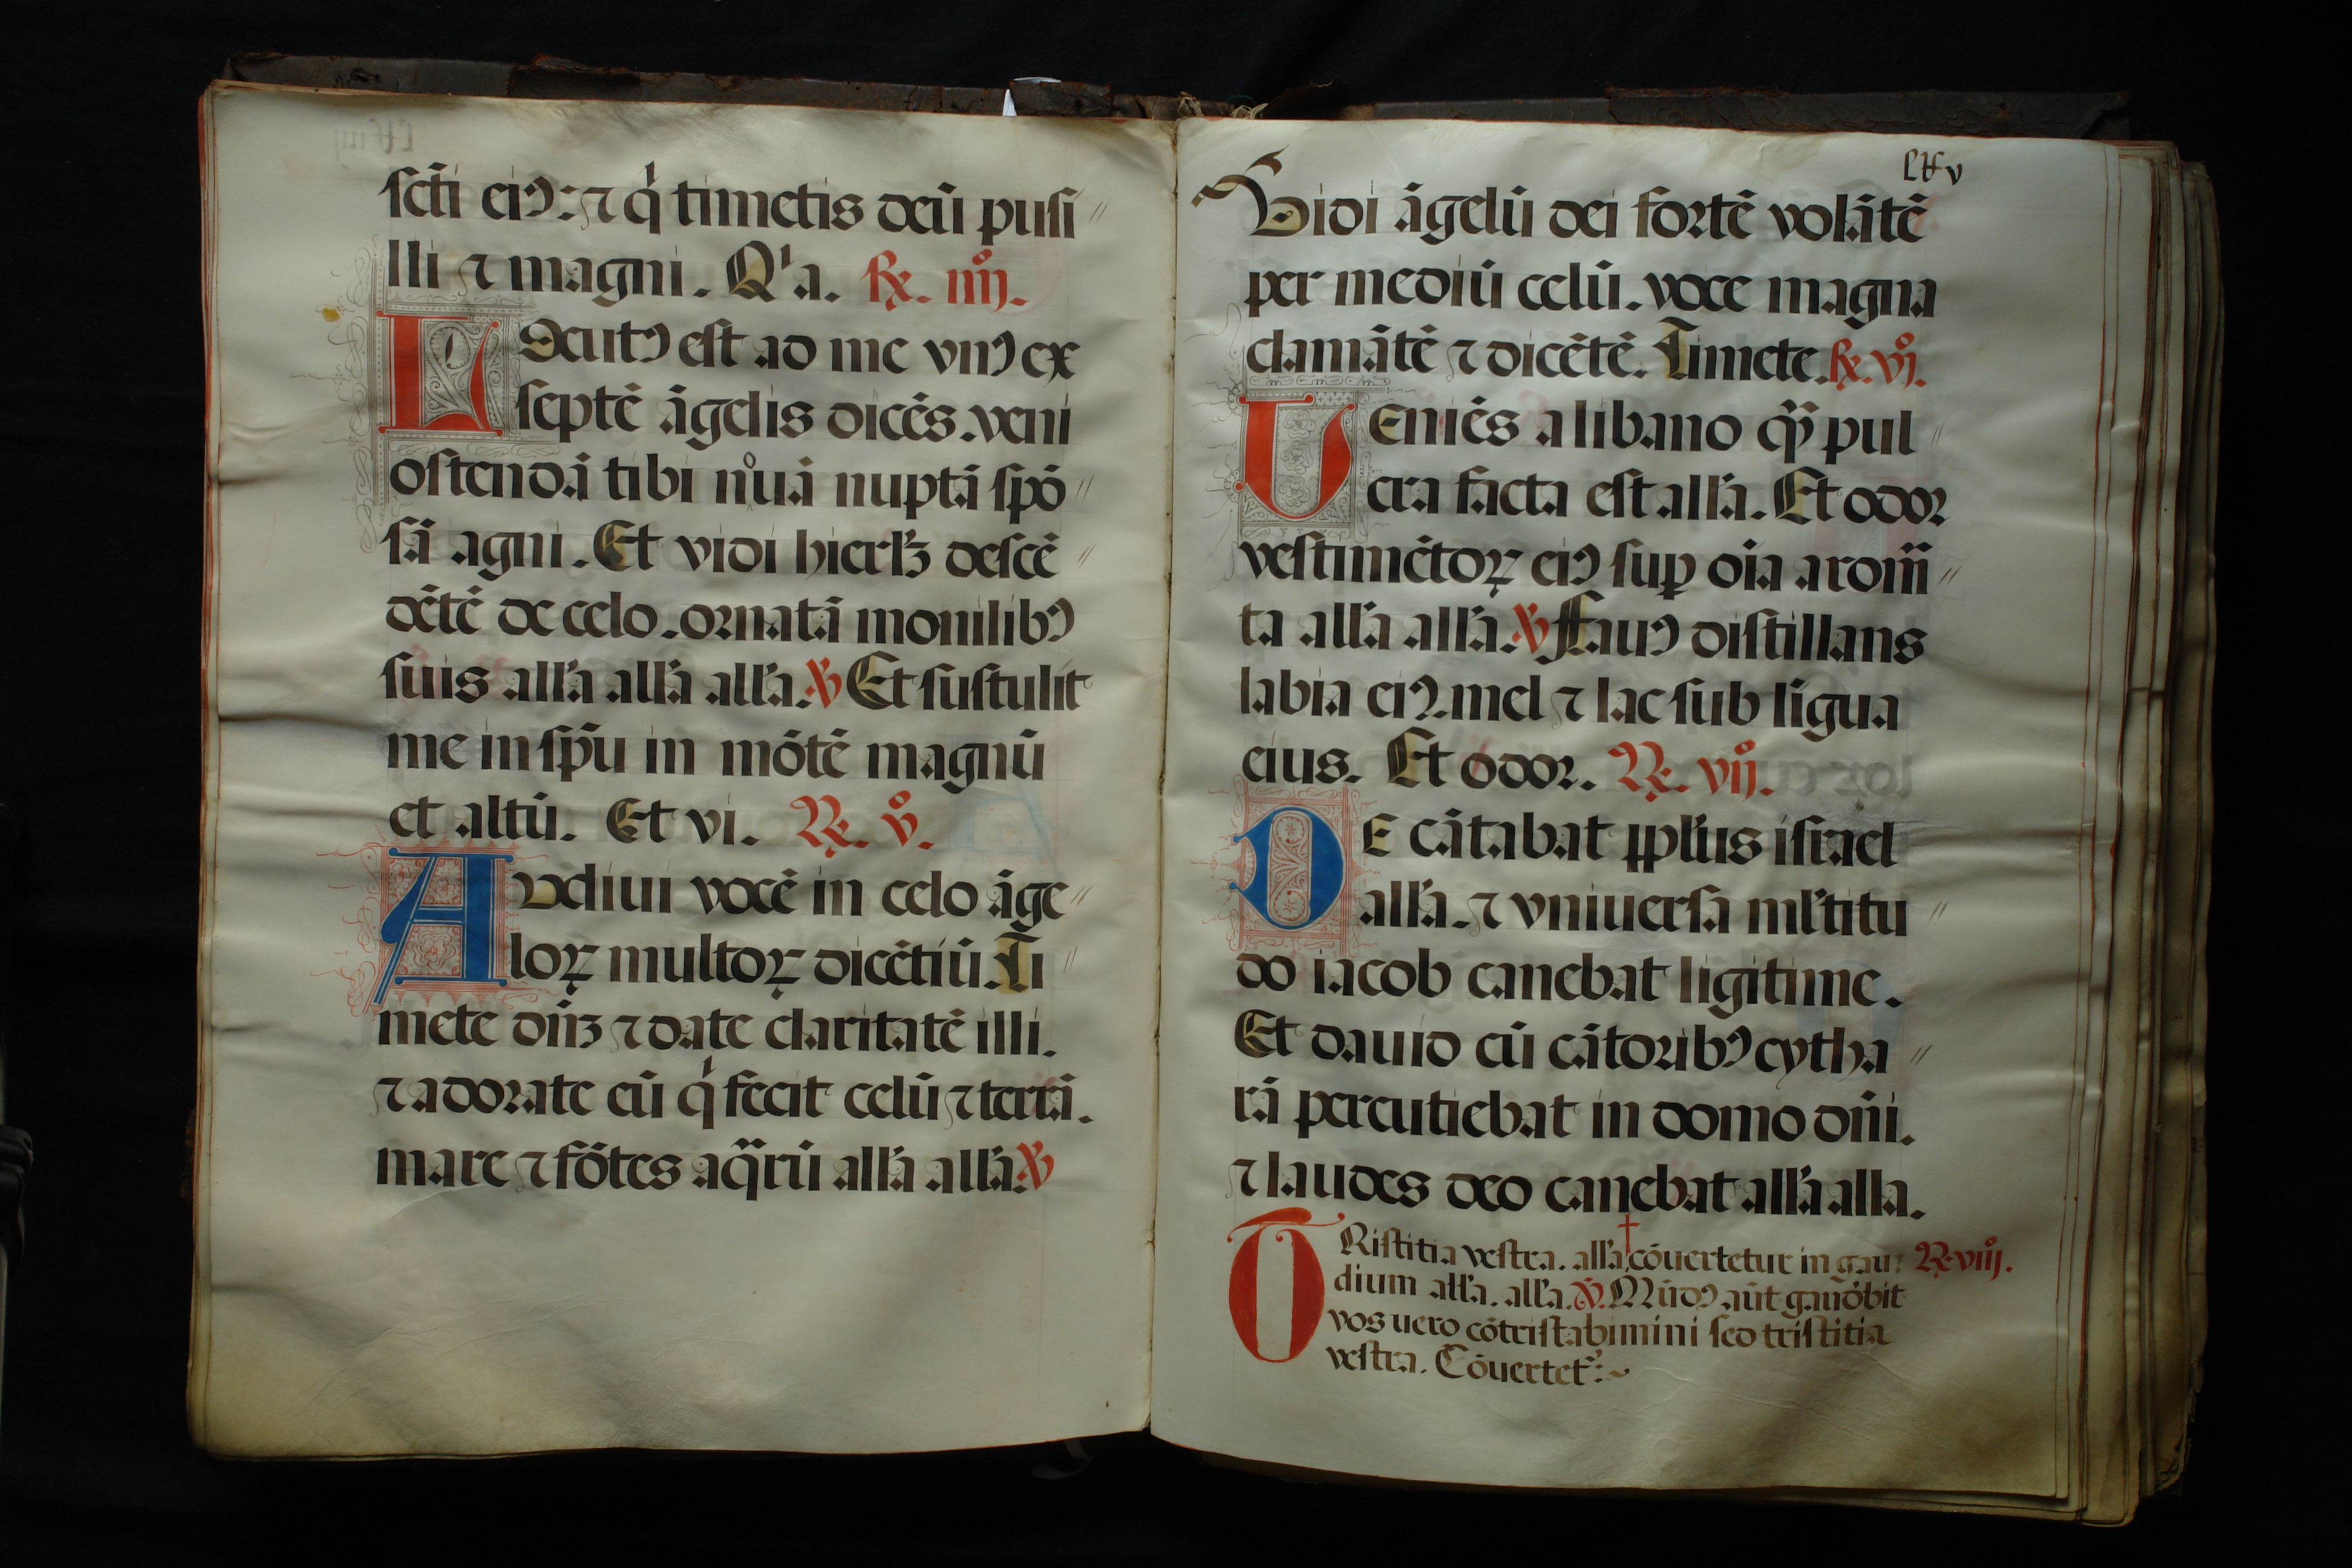 scti̅ eiꝰ: ⁊ q̇ timetis deū pusi //
lli ⁊ magni. Qꞌa. ꝶ. iiijͦ.
Locutꝰ est ad me vnꝰ ex
septē āgelis dicēs. veni
ostendā tibi nͦuā nuptā spō //
sā agni. Et vidi hierlꝫ descē //
dētē de celo. ornatā monilibꝰ
suis all'a all'a all'a. ℣ Et sustulit
me in spū in mōtē magnū
et altū. Et vi. ꝶ. vͦ.
Audiui vocē in celo āge //
loꝝ multoꝝ dicētiū. Ti //
mete dn̄ꝫ ⁊ date claritatē illi.
⁊ adorate eū q̇ fecit celū ⁊ terrā.
mare ⁊ fōtes aq̄rū all'a all'a. ℣
lxv
Vidi āgelū dei fortē volātē
per mediū celū. voce magna
clamātē ⁊ dicētē. Timete. ꝶ. vjͦ.
Ueniēs a libano qȝ̄ pul //
cra facta est all'a. Et odor
vestimētoꝝ eiꝰ suꝑ oīa arom̄ //
ta all'a all'a. ℣ Fauꝰ distillans
labia eiꝰ. mel ⁊ lac sub līgua
eius. Et odor. ꝶ. vijͦ.
DE cātabat pplꞌus israel
all'a. ⁊ vniuersa ml'titu //
do iacob canebat ligitime.
Et dauid cū cātoribꝰ cytha //
rā percutiebat in domo dn̄i.
⁊ laudes deo canebat all'a alla.
TRistitia vestra. all'a † cōuertetur in gau: ꝶ. viijͦ.
dium all'a. all'a. ℣. Mūdꝰ aūt gaudēbit
vos uero cōtristabimini sed tristitia
vestra. Cōuertetᷣ:~